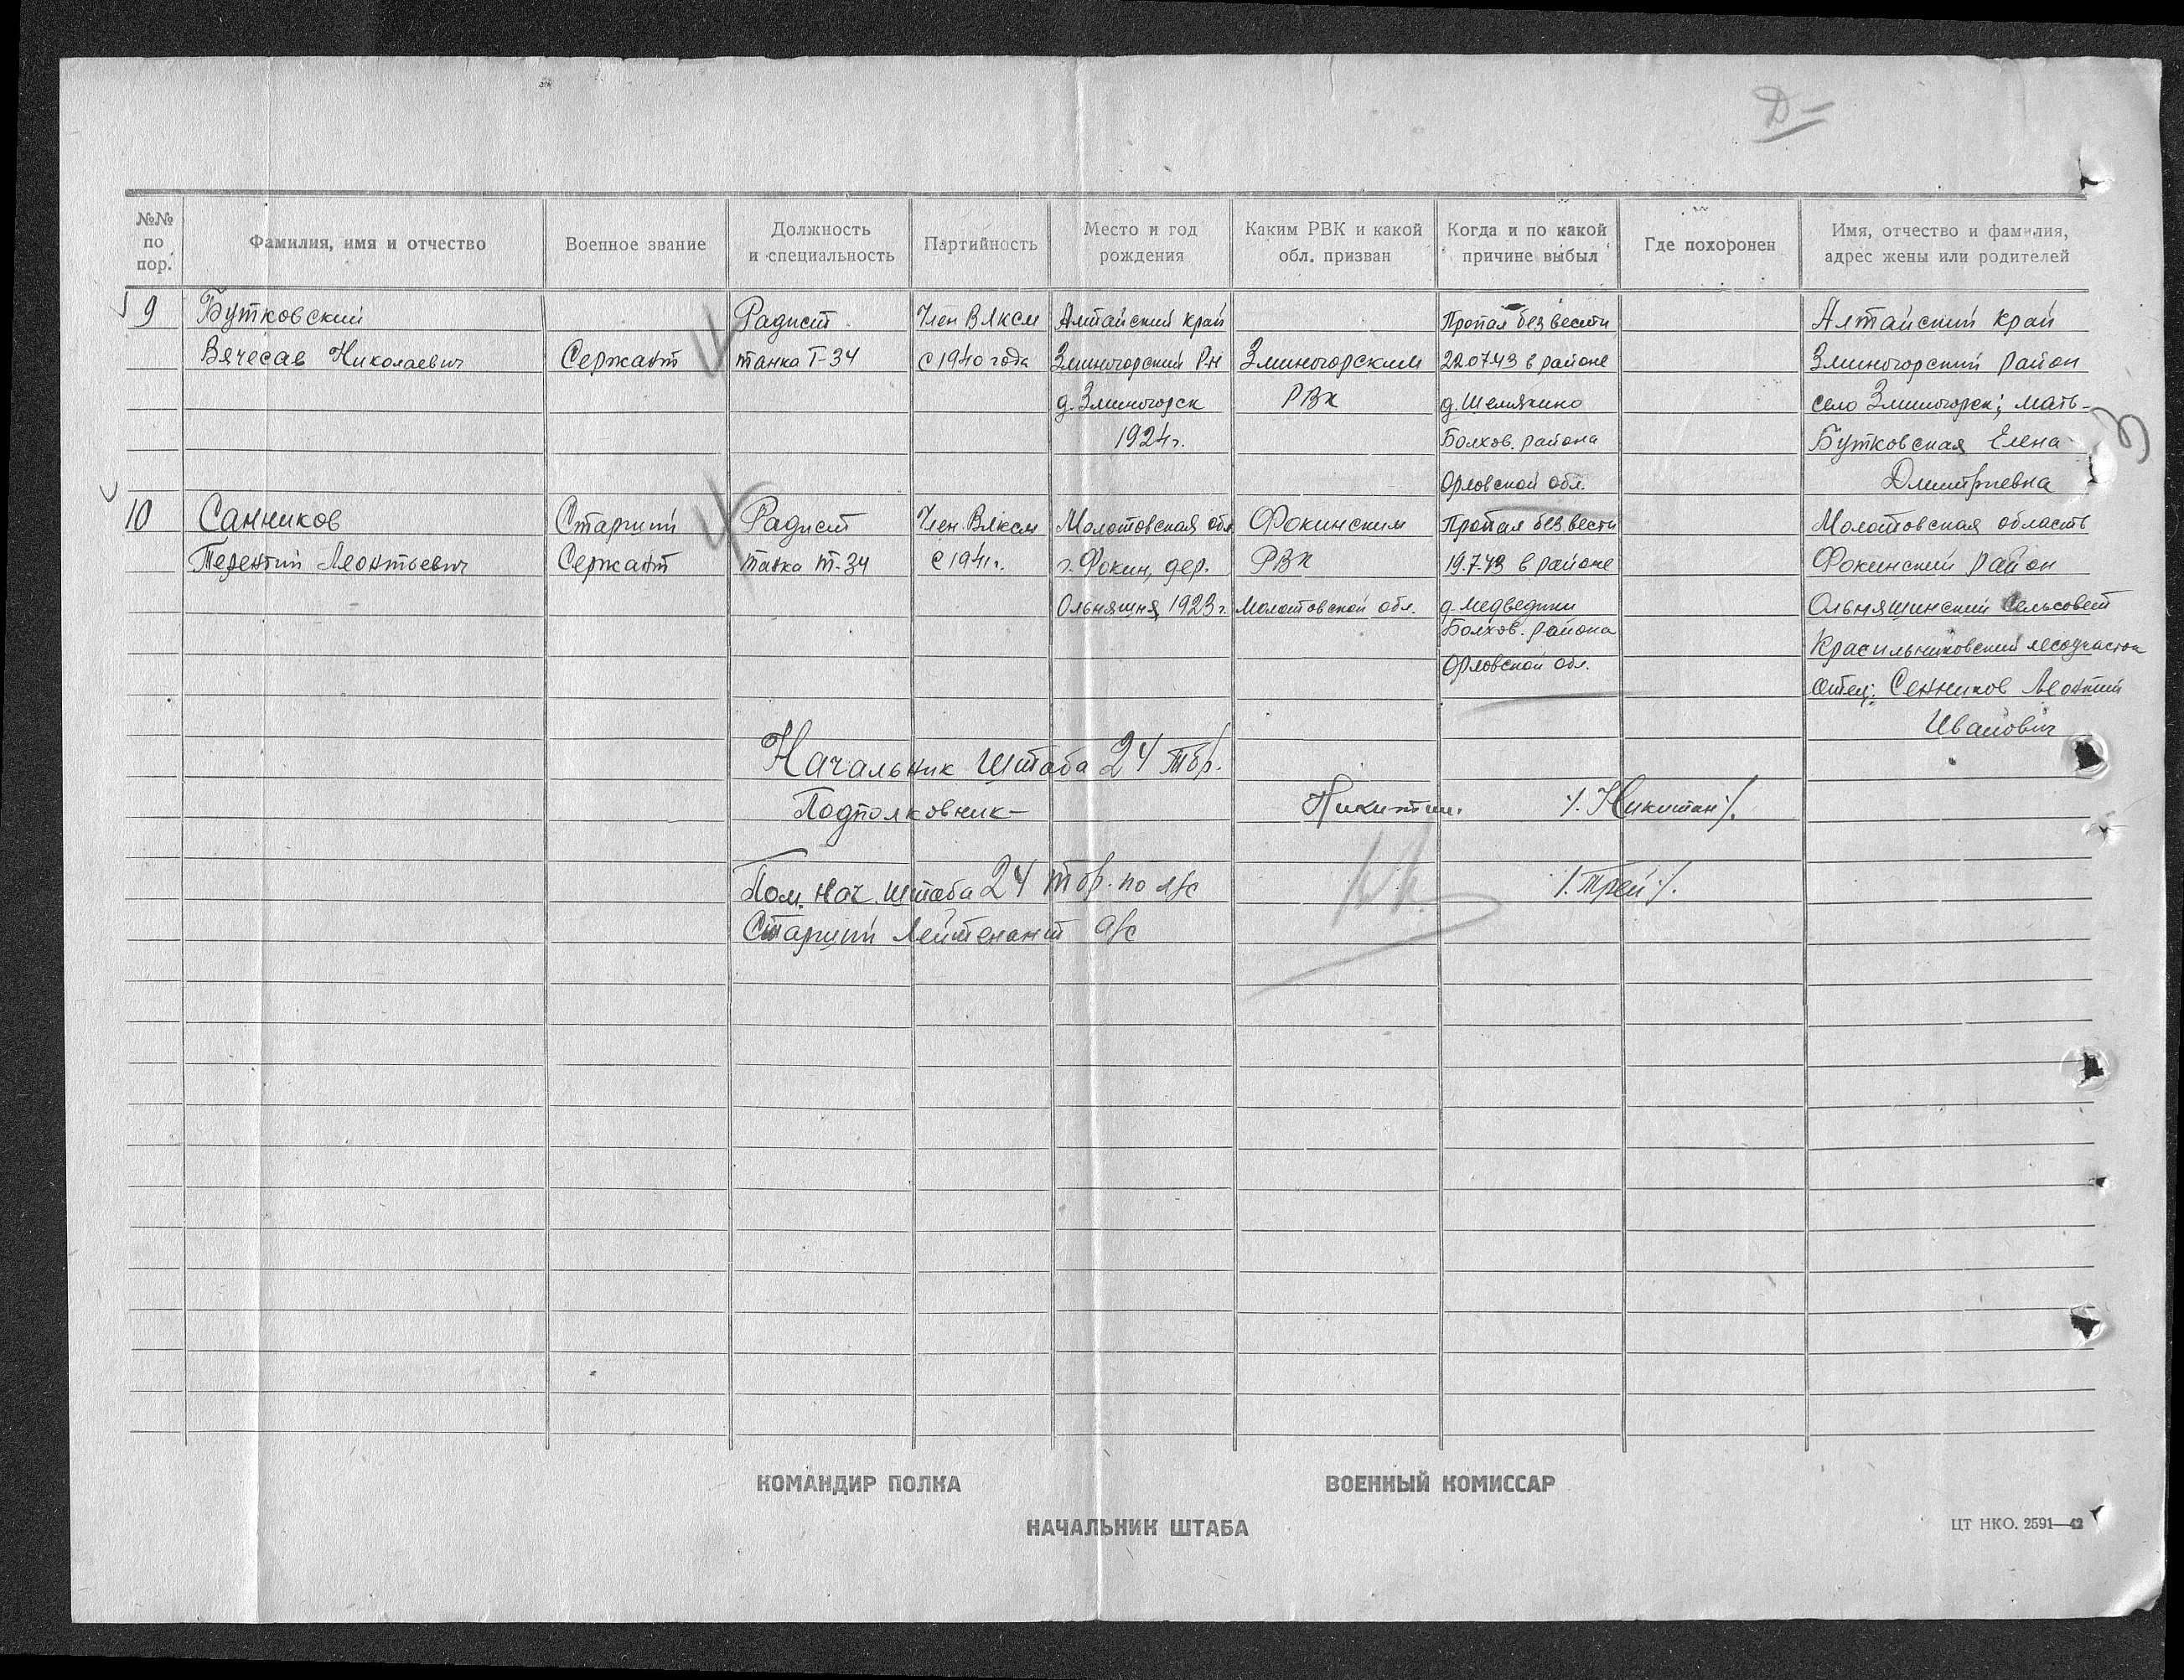 Д-
№№ по пор.
Фамилия, имя и отчество
Военное звание
Должность и специальность
Партийность
Место и год рождения
Каким РВК и какой обл. призван
Когда и по какой причине выбыл
Где похоронен
Имя, отчество и фамилия, адрес жены или родителей
9 Бутковский Радист Член ВЛКСМ Алтайский край Пропал без вести Алтайский край
Вячесав Николаевич Сержант танка Т-34 с 1940 года Змеиногорский р-н Змеиногорским 22.07.43 в районе Змеиногорский район
д. Змеиногорск РВК д. Шемякино село Змеиногорск; мать-
1924г. Болхов. района Бутковская Елена
Орловской обл. Дмитриевна
10 Санников Старший Радист Член ВЛКСМ Молотовская обл Фокинским Пропал без вести Молотовская область
Терентий Леонтьевич Сержант танка Т-34 с 1941г. г. Фокин, дер. РВК 19.7.43 в районе Фокинский район
Ольняшня, 1923г. Молотовской обл. д. Медведики Ольняшинский сельсовет
Болхов. района
Красильниковский лесоучасток
Орловской обл.
Отец: Сенников Леонтий
Иванович
Начальник Штаба 24 тбр.
Подполковник- Никитин. /. Никитин /.
Пом. нач. штаба 24 тбр. по л/с /. Трей /.
Старший Лейтенант а/с
КОМАНДИР ПОЛКА ВОЕННЫЙ КОМИССАР
НАЧАЛЬНИК ШТАБА
ЦТ НКО. 2591—42